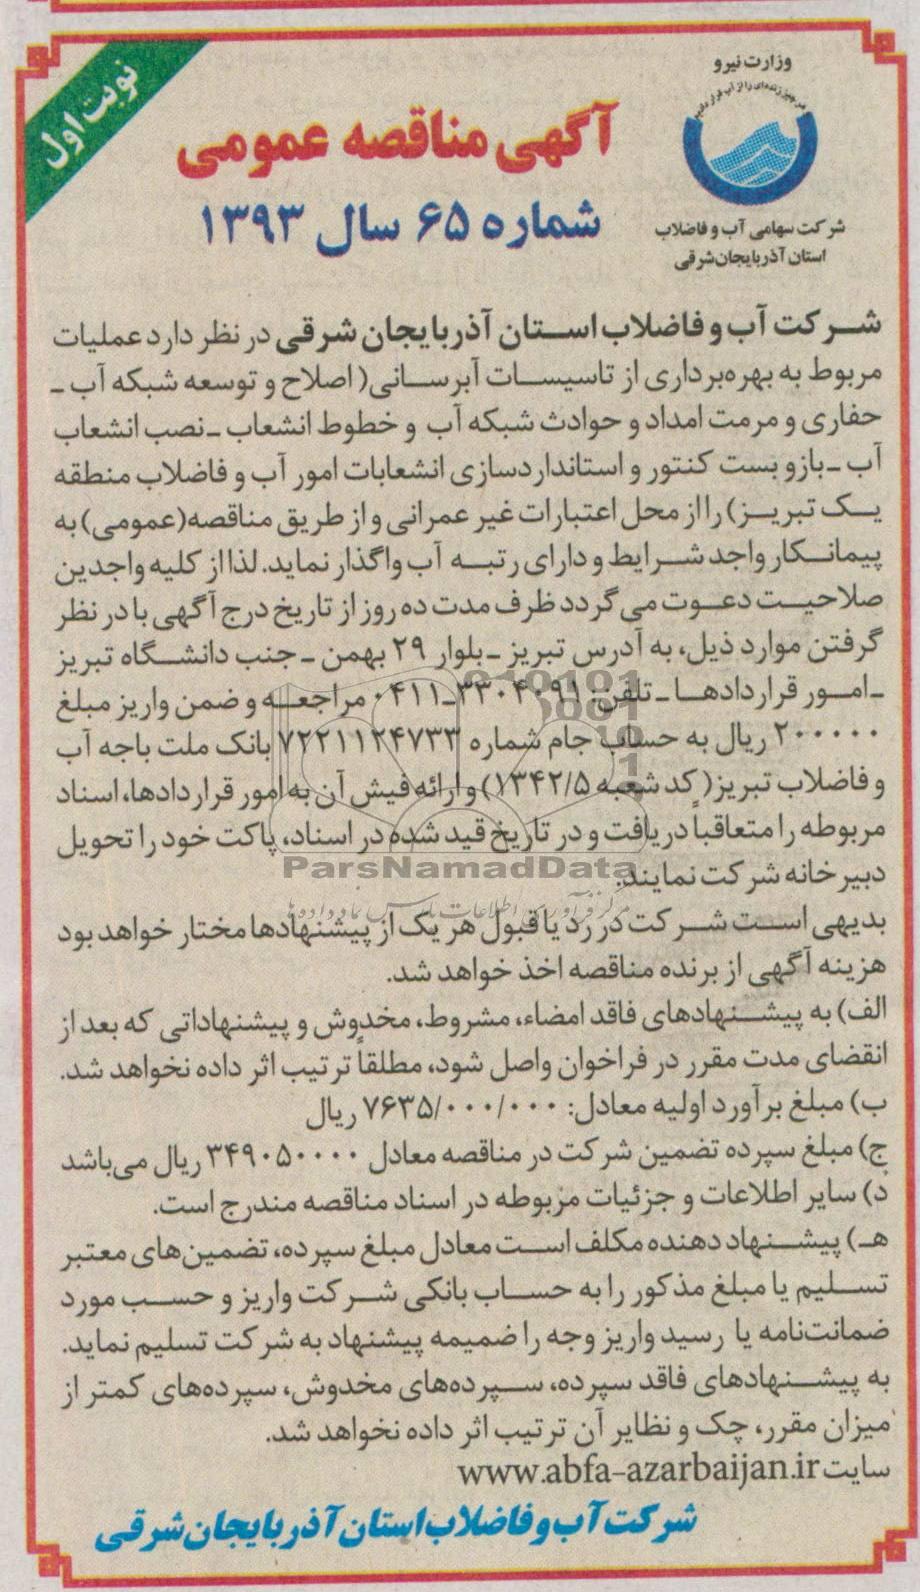 نوبت اول
وزارت نیرو
هر چیز زنده‌ای را از آب قرار دادیم
شرکت سهامی آب و فاضلاب
استان آذربایجان‌شرقی
آگهی مناقصه عمومی
شماره ۶۵ سال ۱۳۹۳
شرکت آب و فاضلاب استان آذربایجان شرقی در نظر دارد عملیات
مربوط به بهره‌برداری از تاسیسات آبرسانی( اصلاح و توسعه شبکه آب ـ
حفاری و مرمت امداد و حوادث شبکه آب و خطوط انشعاب ـ نصب انشعاب
آب ـ باز و بست کنتور و استانداردسازی انشعابات امور آب و فاضلاب منطقه
یک تبریز) را از محل اعتبارات غیر عمرانی و از طریق مناقصه(عمومی) به
پیمانکار واجد شرایط و دارای رتبه آب واگذار نماید. لذا از کلیه واجدین
صلاحیت دعوت می گردد ظرف مدت ده روز از تاریخ درج آگهی با در نظر
گرفتن موارد ذیل، به آدرس تبریز ـ بلوار ۲۹ بهمن ـ جنب دانشگاه تبریز
ـ امور قراردادها ـ تلفن: ۳۳۰۴۰۹۱ـ۰۴۱۱ مراجعه و ضمن واریز مبلغ
۲۰۰۰۰۰ ریال به حساب جام شماره ۷۲۲۱۱۲۴۷۳۳ بانک ملت باجه آب
و فاضلاب تبریز( کد شعبه ۱۳۴۲/۵) و ارائه فیش آن به امور قراردادها، اسناد
مربوطه را متعاقباً دریافت و در تاریخ قید شده در اسناد، پاکت خود را تحویل
دبیرخانه شرکت نمایند.
ParsNamadData
مرکز فرآوری اطلاعات پارس نماد داده‌ها
بدیهی است شرکت در رد یا قبول هر یک از پیشنهادها مختار خواهد بود
هزینه آگهی از برنده مناقصه اخذ خواهد شد.
الف) به پیشنهادهای فاقد امضاء، مشروط، مخدوش و پیشنهاداتی که بعد از
انقضای مدت مقرر در فراخوان واصل شود، مطلقاً ترتیب اثر داده نخواهد شد.
ب) مبلغ برآورد اولیه معادل: ۷۶۳۵/۰۰۰/۰۰۰ ریال
ج) مبلغ سپرده تضمین شرکت در مناقصه معادل ۳۴۹۰۵۰۰۰۰ ریال می‌باشد
د) سایر اطلاعات و جزئیات مربوطه در اسناد مناقصه مندرج است.
هـ) پیشنهاد دهنده مکلف است معادل مبلغ سپرده، تضمین‌های معتبر
تسلیم یا مبلغ مذکور را به حساب بانکی شرکت واریز و حسب مورد
ضمانت‌نامه یا رسید واریز وجه را ضمیمه پیشنهاد به شرکت تسلیم نماید.
به پیشنهادهای فاقد سپرده، سپرده‌های مخدوش، سپرده‌های کمتر از
میزان مقرر، چک و نظایر آن ترتیب اثر داده نخواهد شد.
سایت www.abfa-azarbaijan.ir
شرکت آب و فاضلاب استان آذربایجان شرقی